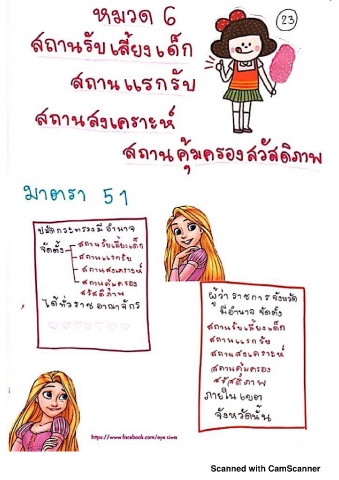 23
หมวด 6
สถานรับเลี้ยงเด็ก
สถานแรกรับ
สถานสงเคราะห์
สถานคุ้มครองสวัสดิภาพ
มาตรา 51
ปลัดกระทรวงมีอำนาจ
จัดตั้ง
สถานรับเลี้ยงเด็ก
สถานแรกรับ
สถานสงเคราะห์
สถานคุ้มครอง
สวัสดิภาพ
ได้ทั่วราชอาณาจักร
ผู้ว่าราชการจังหวัด
มีอำนาจจัดตั้ง
สถานรับเลี้ยงเด็ก
สถานแรกรับ
สถานสงเคราะห์
สถานคุ้มครอง
สวัสดิภาพ
ภายในเขต
จังหวัดนั้น
https://www.facebook.com/eye.siwa
Scanned with CamScanner